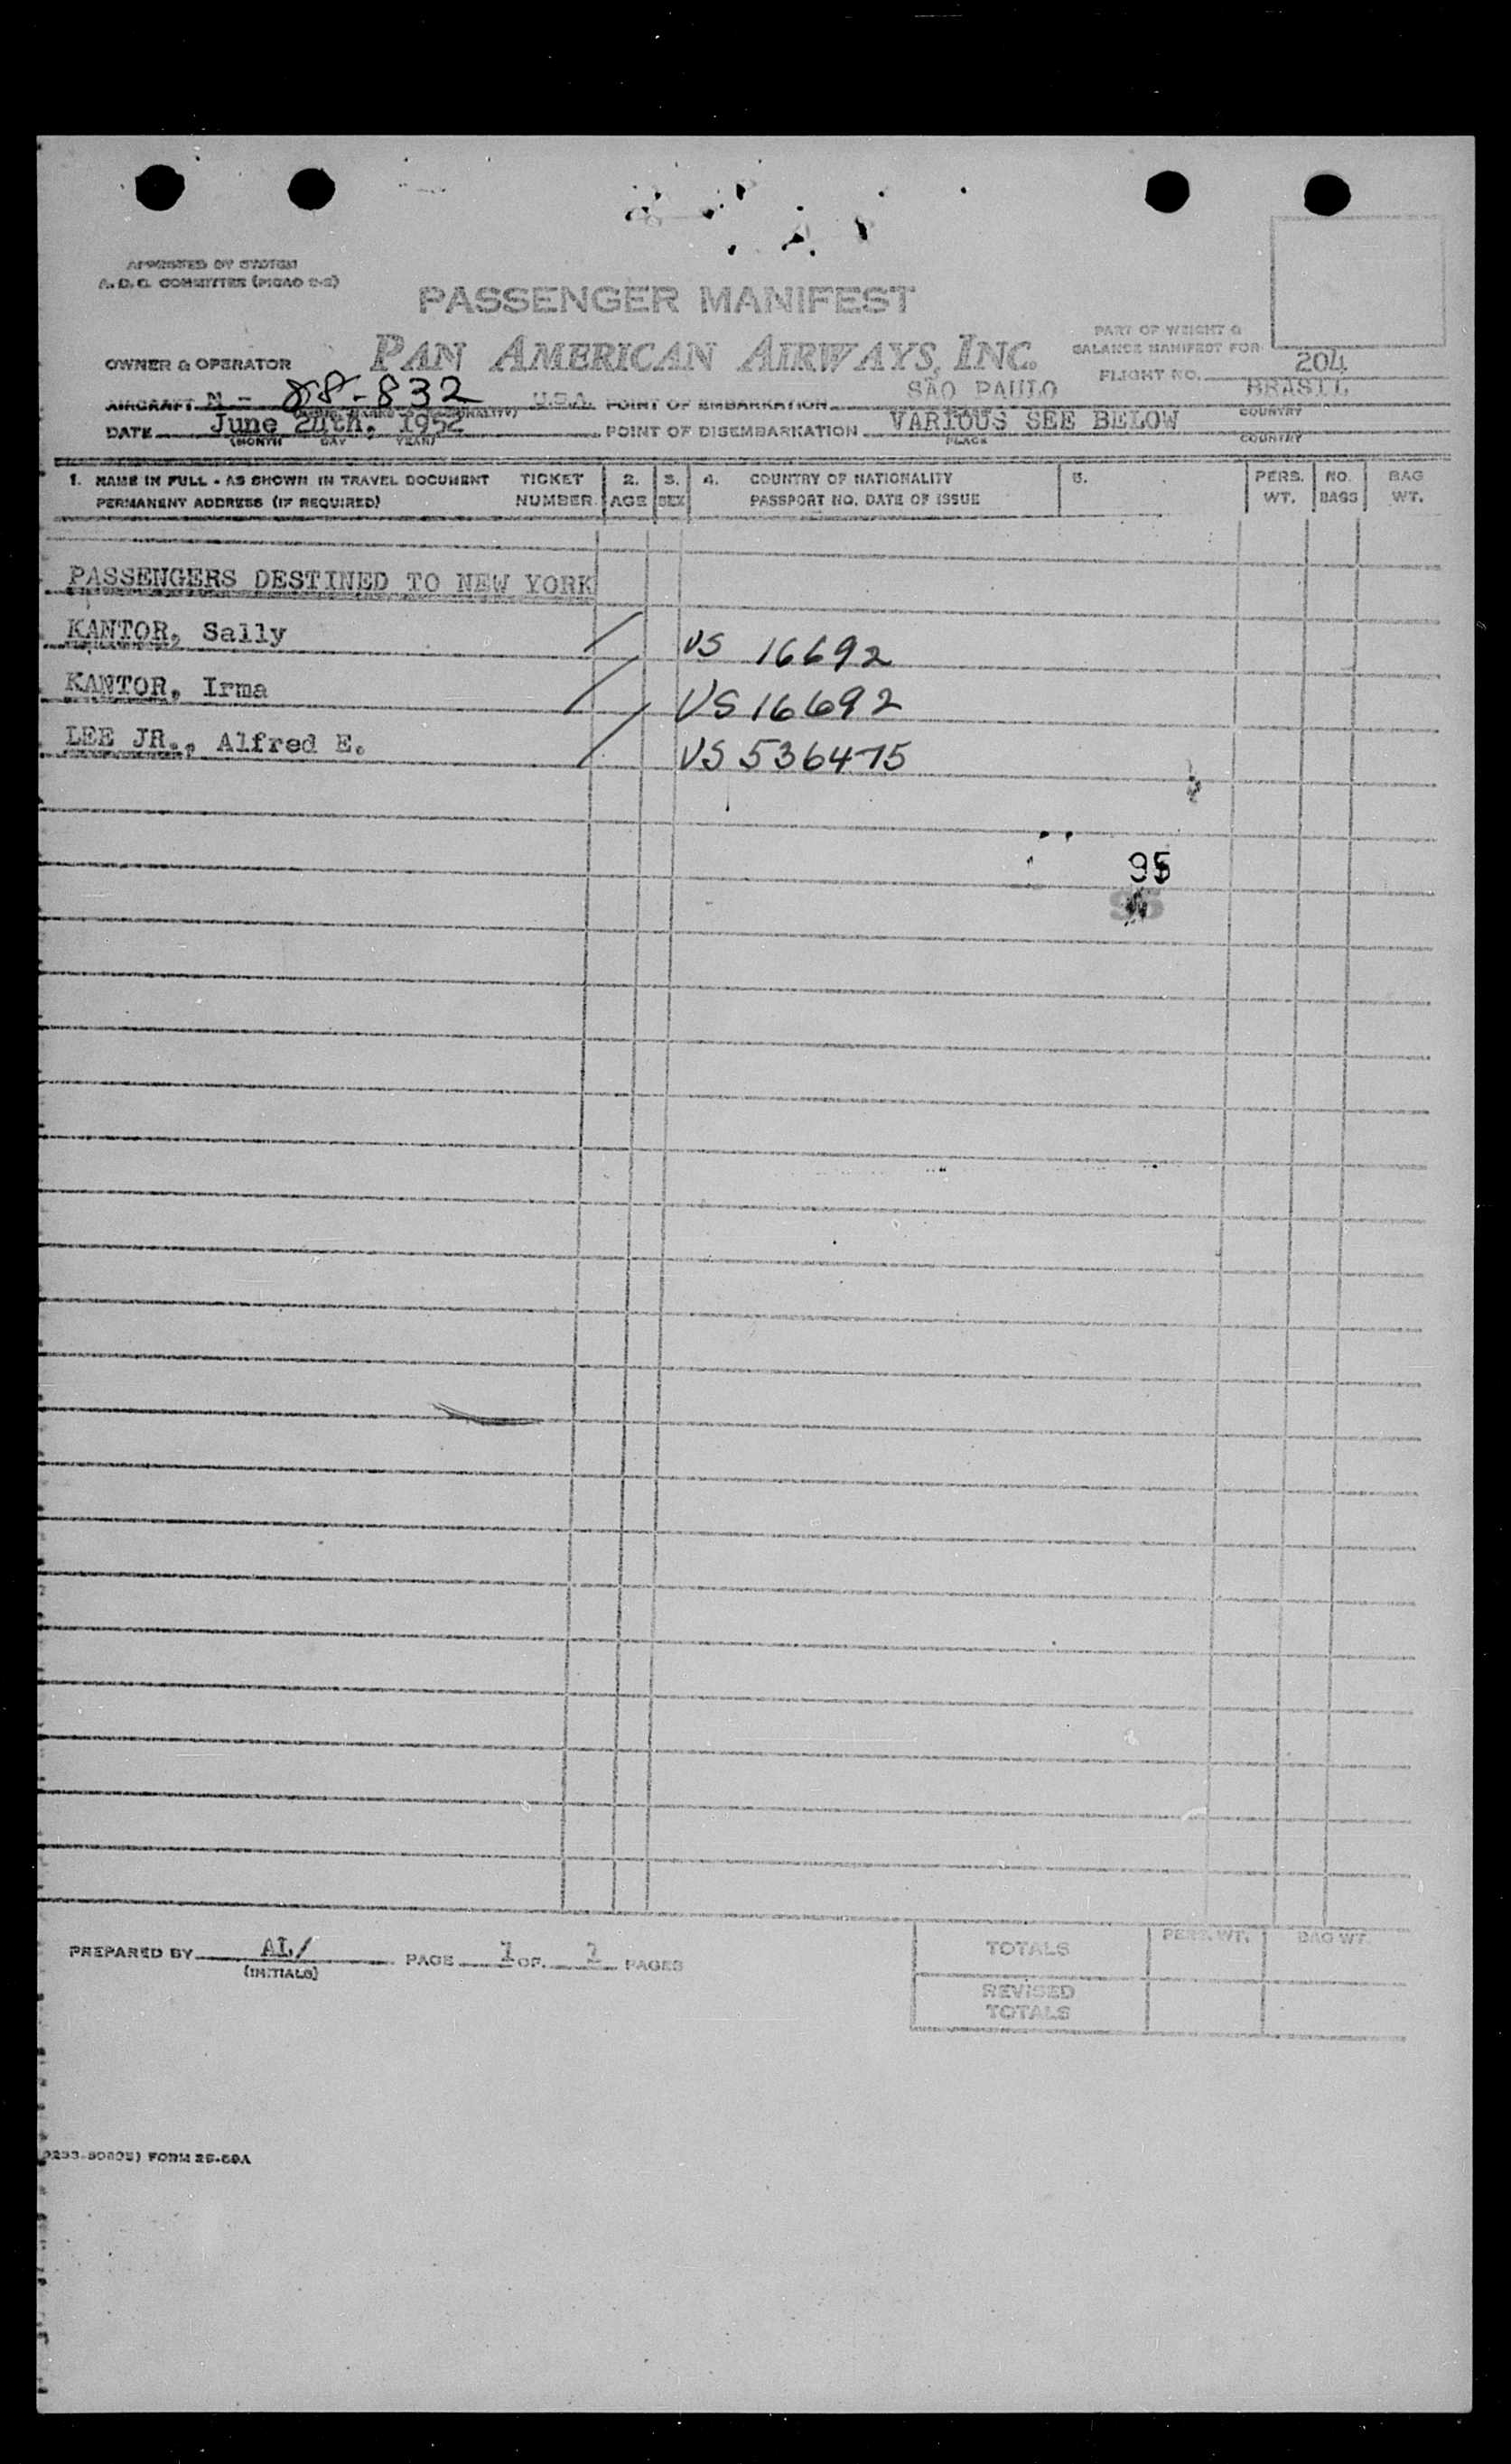 APPROVED BY SYSTEM
A. D. C. COMMITTEE (PICAO 2-2)
PASSENGER MANIFEST
PART OF WEIGHT &
BALANCE MANIFEST FOR
OWNER & OPERATOR PAN AMERICAN AIRWAYS, INC.
FLIGHT NO. 204
AIRCRAFT N - 88-832 U.S.A. POINT OF EMBARKATION SÃO PAULO BRASIL
COUNTRY
DATE June 24th, 1952 POINT OF DISEMBARKATION VARIOUS SEE BELOW
(MONTH DAY YEAR) PLACE COUNTRY
1. NAME IN FULL - AS SHOWN IN TRAVEL DOCUMENT TICKET 2. 3. 4. COUNTRY OF NATIONALITY 5. PERS. NO. BAG
PERMANENT ADDRESS (IF REQUIRED) NUMBER AGE SEX PASSPORT NO. DATE OF ISSUE WT. BAGS WT.
PASSENGERS DESTINED TO NEW YORK
KANTOR, Sally VS 16692
KANTOR, Irma VS 16692
LEE JR., Alfred E. VS 536475
95
PREPARED BY AL/ PAGE 1 OF 1 PAGES
(INITIALS)
TOTALS PERS. WT. BAG WT.
REVISED
TOTALS
FORM 26-59A